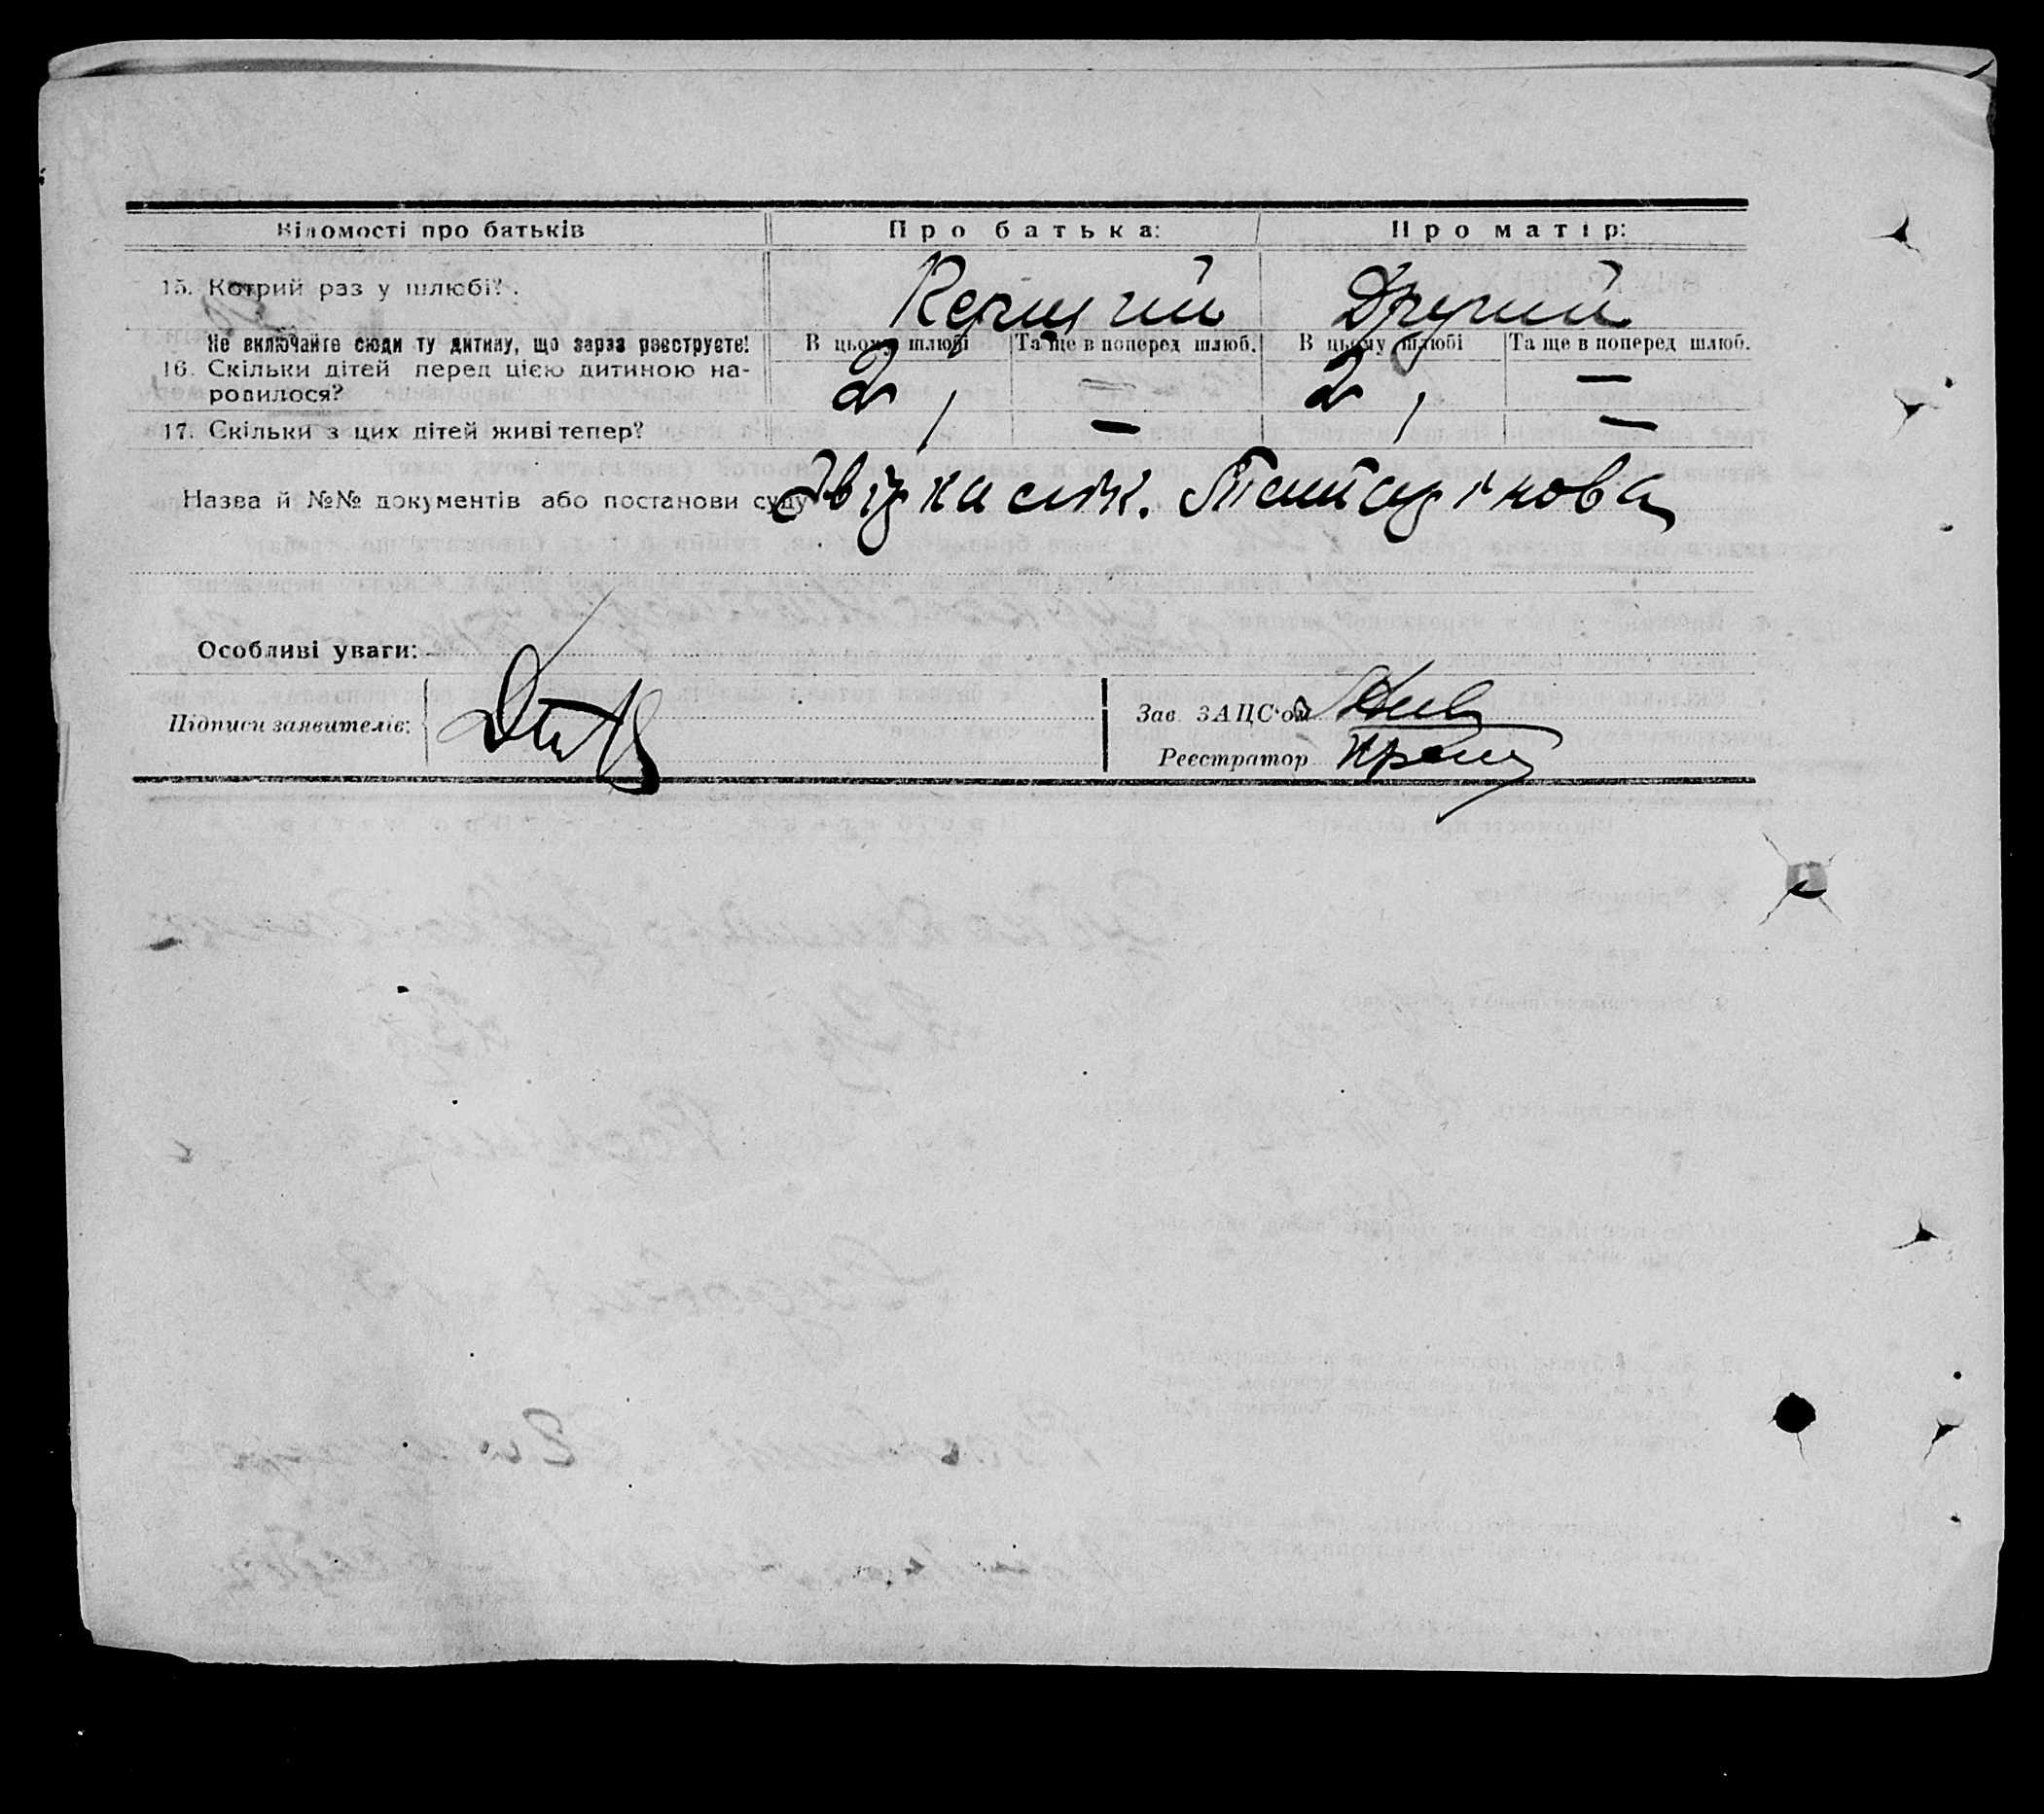 Відомості про батьків
Про батька:
Про матір:
15. Котрий раз у шлюбі?
Другий
Не включайте сюди ту дитину, що зараз реєструєте!
В цьому шлюбі
Та ще в поперед шлюб.
В цьому шлюбі
Та ще в поперед шлюб.
16. Скільки дітей перед цією дитиною на-
родилося?
2
—
2
—
17. Скільки з цих дітей живі тепер?
1
—
1
—
Назва й №№ документів або постанови суду
Особливі уваги:
Підписи заявителів:
Зав. ЗАЦС'ом
Реєстратор